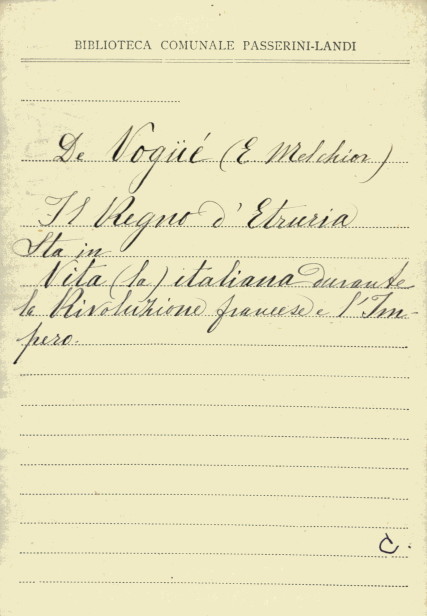 BIBLIOTECA COMUNALE PASSERINI-LANDI
De Vogüé (E Melchior)
Il Regno d'Etruria
Sta in
Vita (la) italiana durante
la Rivoluzione francese e l'Im-
pero.
C.